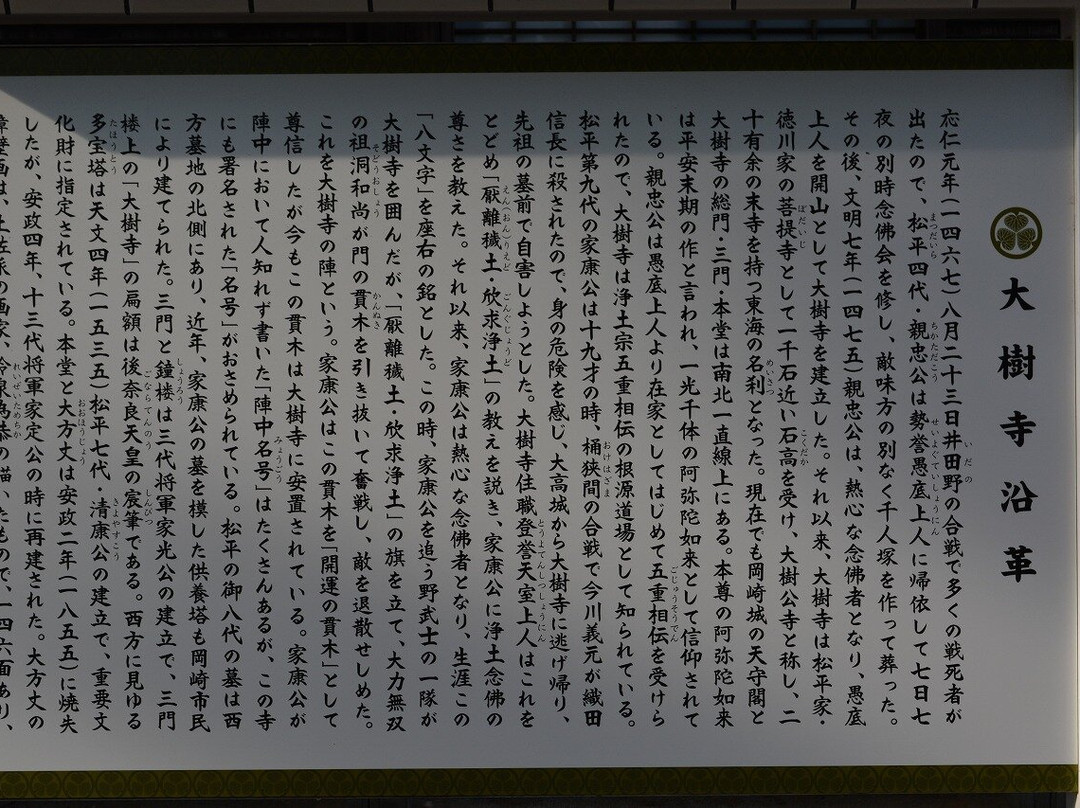 大樹寺沿革
応仁元年(一四六七)八月二十三日井田野の合戦で多くの戦死者が
出たので、松平四代・親忠公は勢誉愚底上人に帰依して七日七
夜の別時念佛会を修し、敵味方の別なく千人塚を作って葬った。
その後、文明七年(一四七五)親忠公は、熱心な念佛者となり、愚底
上人を開山として大樹寺を建立した。それ以来、大樹寺は松平家・
徳川家の菩提寺として一千石近い石高を受け、大樹公寺と称し、二
十有余の末寺を持つ東海の名刹となった。現在でも岡崎城の天守閣と
大樹寺の総門・三門・本堂は南北一直線上にある。本尊の阿弥陀如来
は平安末期の作と言われ、一光千体の阿弥陀如来として信仰されて
いる。親忠公は愚底上人より在家としてはじめて五重相伝を受けら
れたので、大樹寺は浄土宗五重相伝の根源道場として知られている。
松平第九代の家康公は十九才の時、桶狭間の合戦で今川義元が織田
信長に殺されたので、身の危険を感じ、大高城から大樹寺に逃げ帰り、
先祖の墓前で自害しようとした。大樹寺住職登誉天室上人はこれを
とどめ「厭離穢土・欣求浄土」の教えを説き、家康公に浄土念佛の
尊さを教えた。それ以来、家康公は熱心な念佛者となり、生涯この
「八文字」を座右の銘とした。この時、家康公を追う野武士の一隊が
大樹寺を囲んだが、「厭離穢土・欣求浄土」の旗を立て、大力無双
の祖洞和尚が門の貫木を引き抜いて奮戦し、敵を退散せしめた。
これを大樹寺の陣という。家康公はこの貫木を「開運の貫木」として
尊信したが今もこの貫木は大樹寺に安置されている。家康公が
陣中において人知れず書いた「陣中名号」はたくさんあるが、この寺
にも署名された「名号」がおさめられている。松平の御八代の墓は西
方墓地の北側にあり、近年、家康公の墓を模した供養塔も岡崎市民
により建てられた。三門と鐘楼は三代将軍家光公の建立で、三門
楼上の「大樹寺」の扁額は後奈良天皇の宸筆である。西方に見ゆる
多宝塔は天文四年(一五三五)松平七代・清康公の建立で、重要文
化財に指定されている。本堂と大方丈は安政二年(一八五五)に焼失
したが、安政四年、十三代将軍家定公の時に再建された。大方丈の
障壁画は、土佐派の画家、冷泉為恭の描いたもので、一四六面あり、